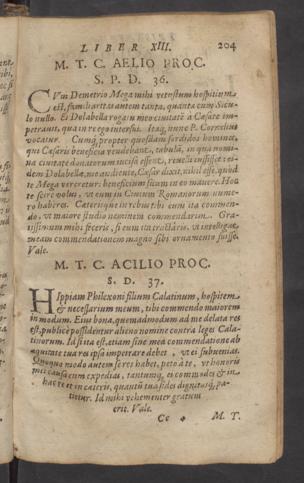 LIBER XIII. 204
M. T. C. AELIO PROC.
S. P. D. 36.
CVm Demetrio Mega mihi vetustum hospitium
est, familiaritas autem tanta, quanta cum Sicu-
lo nullo. Ei Dolabella rogatu meo ciuitatē à Cæsare im-
petrauit, qua in re ego interfui. Itaq; nunc P. Cornelius
vocatur. Cumq; propter quosdam sordidos homines,
qui Cæsaris beneficia vendebant, tabulā, in qua nomi-
na ciuitate donatorum incisa essent, reuelli iussisset: ei-
dem Dolabella, me audiente, Cæsar dixit, nihil esse, quòd
de Mega vereretur: beneficium suum in eo manere. Hoc
te scire volui, vt eum in Ciuium Romanorum nume-
ro haberes. Cæterisque in rebus tibi eum ita commen-
do, vt maiore studio neminem commendarim. Gra-
tissimum mihi feceris, si eum ita tractâris, vt intellegat,
meam commendationem magno sibi ornamento fuisse.
Vale.
M. T. C. ACILIO PROC.
S. D. 37.
HIppiam Philoxeni filium Calatinum, hospitem
& necessarium meum, tibi commendo maiorem
in modum. Eius bona, quemadmodum ad me delata res
est, publicè possidentur alieno nomine contra leges Cala-
tinorum. Id si ita est, etiam sine mea commendatione ab
æquitate tua res ipsa impetrare debet, vt ei subuenias.
Quoquo modo autem se res habet, peto à te, vt honoris
mei causa eum expedias, tantumq; ei commodes & in
hac re et in cæteris, quantū tua fides dignitasq; pa-
tietur. Id mihi vehementer gratum
erit. Vale.
Cc M. T.